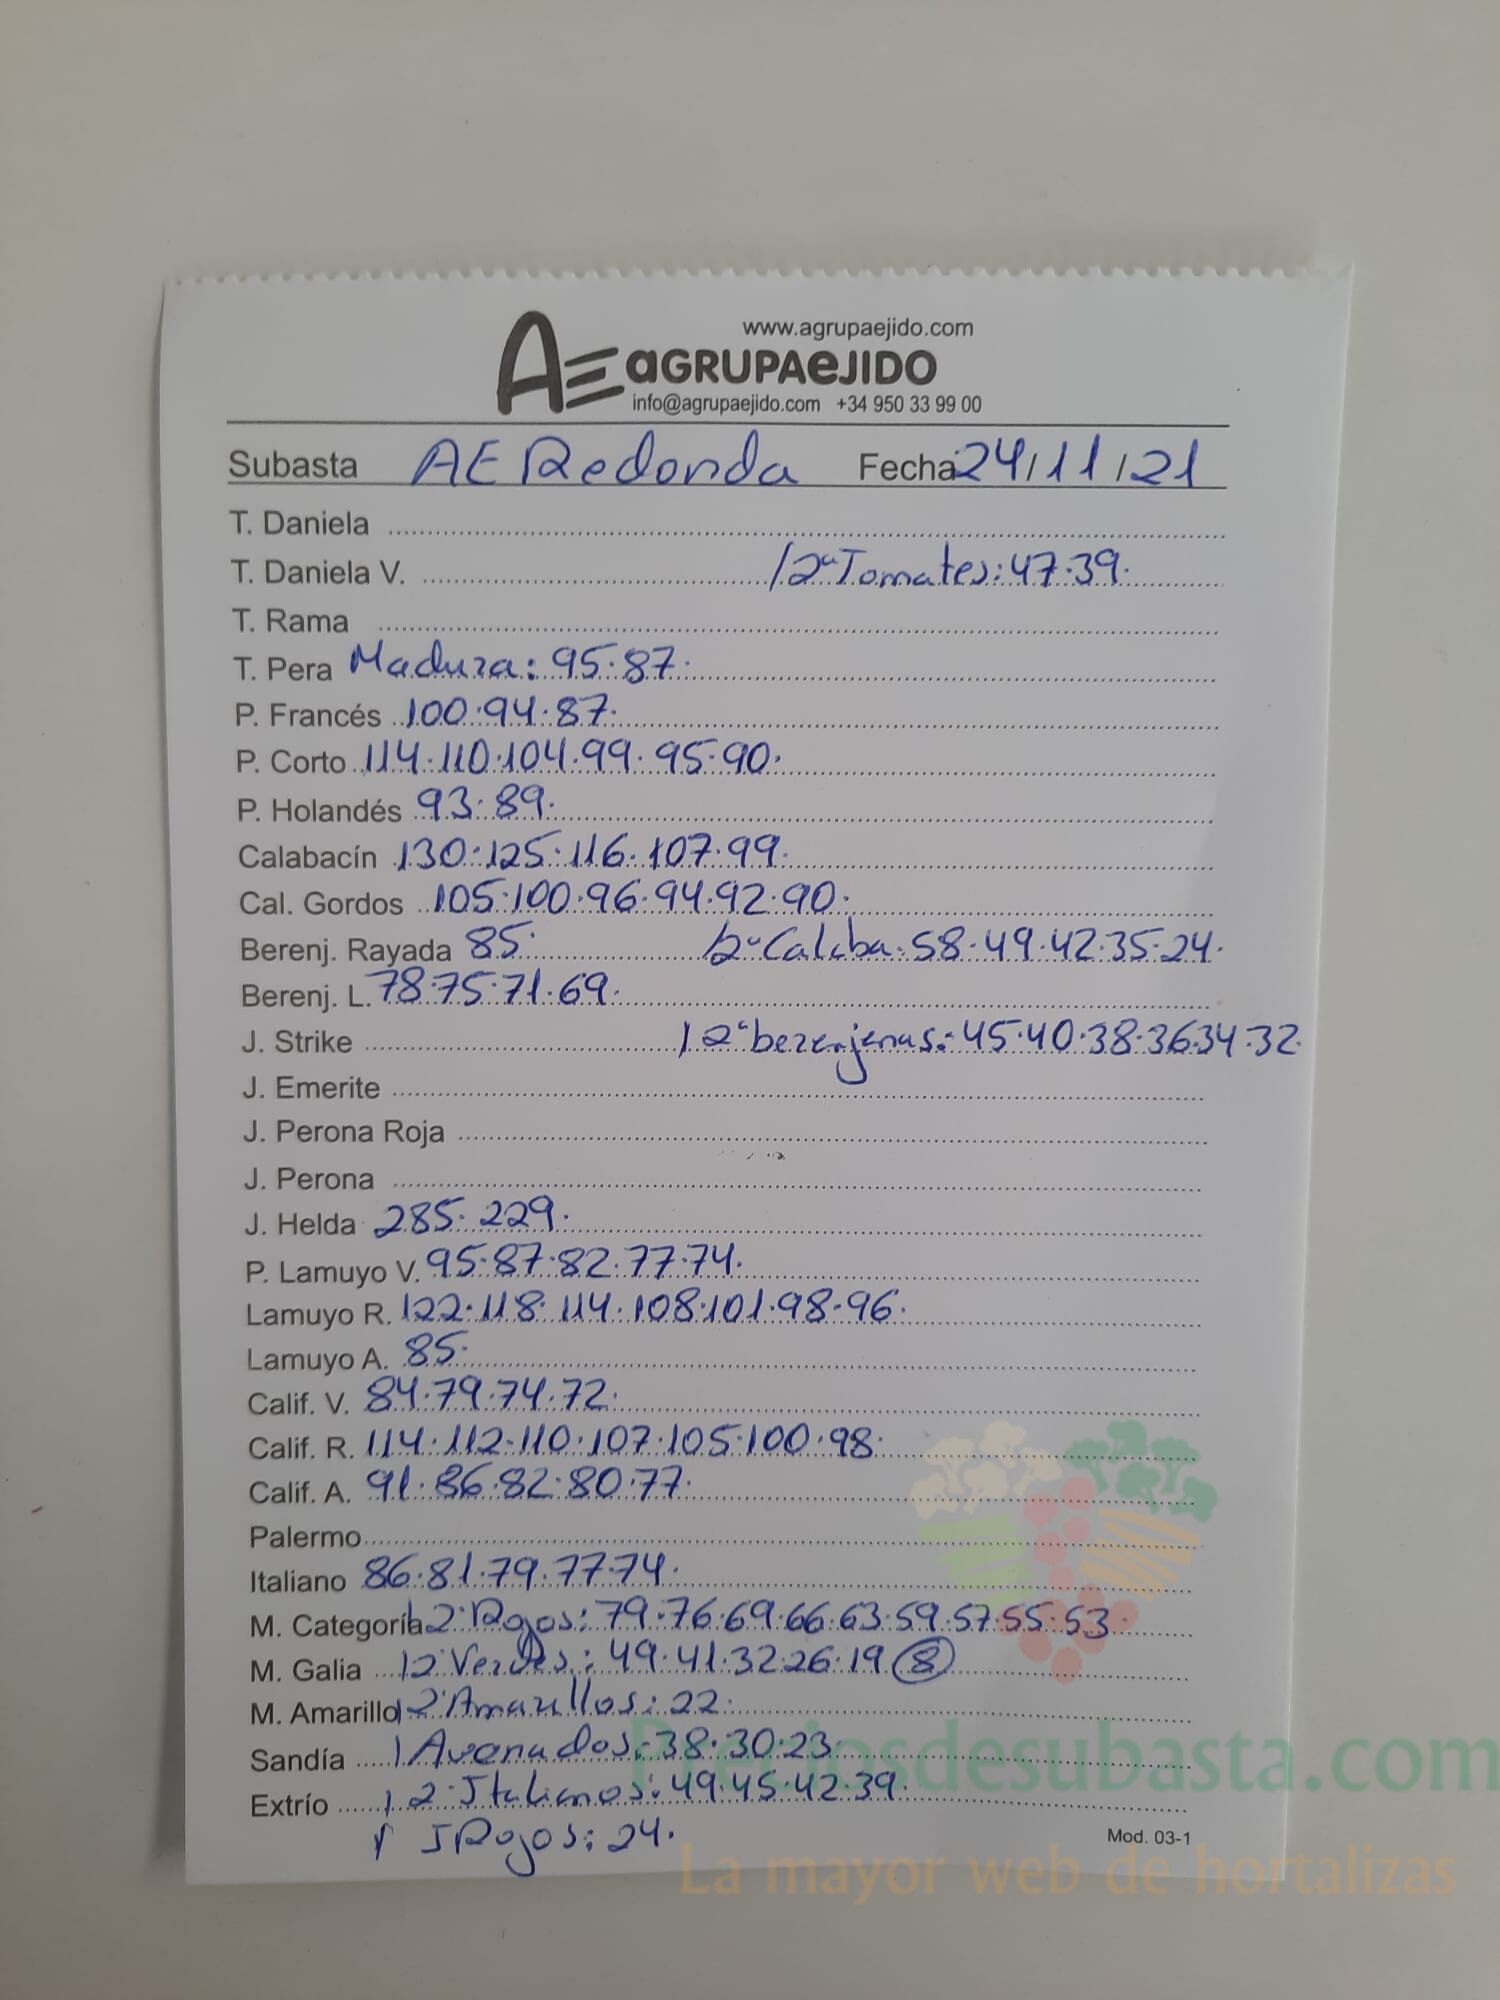 www.agrupaejido.com
AE aGRUPAeJIDO
info@agrupaejido.com +34 950 33 99 00
Subasta AE Redonda Fecha 24/11/21
T. Daniela
T. Daniela V. /2ª Tomates: 47.39.
T. Rama
T. Pera Madura: 95.87.
P. Francés 100.94.87.
P. Corto 114.110.104.99.95.90.
P. Holandés 93.89.
Calabacín 130.125.116.107.99.
Cal. Gordos 105.100.96.94.92.90.
Berenj. Rayada 85. /2ª Calaba: 58.49.42.35.24.
Berenj. L. 78.75.71.69.
J. Strike /2ª berenjenas: 45.40.38.36.34.32.
J. Emerite
J. Perona Roja
J. Perona
J. Helda 285.229.
P. Lamuyo V. 95.87.82.77.74.
Lamuyo R. 122.118.114.108.101.98.96.
Lamuyo A. 85.
Calif. V. 84.79.74.72.
Calif. R. 114.112.110.107.105.100.98.
Calif. A. 91.86.82.80.77.
Palermo
Italiano 86.81.79.77.74.
M. Categoría /2ª Rojos: 79.76.69.66.63.59.57.55.53.
M. Galia /2 Verdes: 49.41.32.26.19 (8)
M. Amarillo /2ª Amarillos: 22.
Sandía / Asurados: 38.30.23.
Extrío / 2ª Italianos: 49.45.42.39.
/ I Rojos: 24.
Mod. 03-1
Preciosdesubasta.com
La mayor web de hortalizas